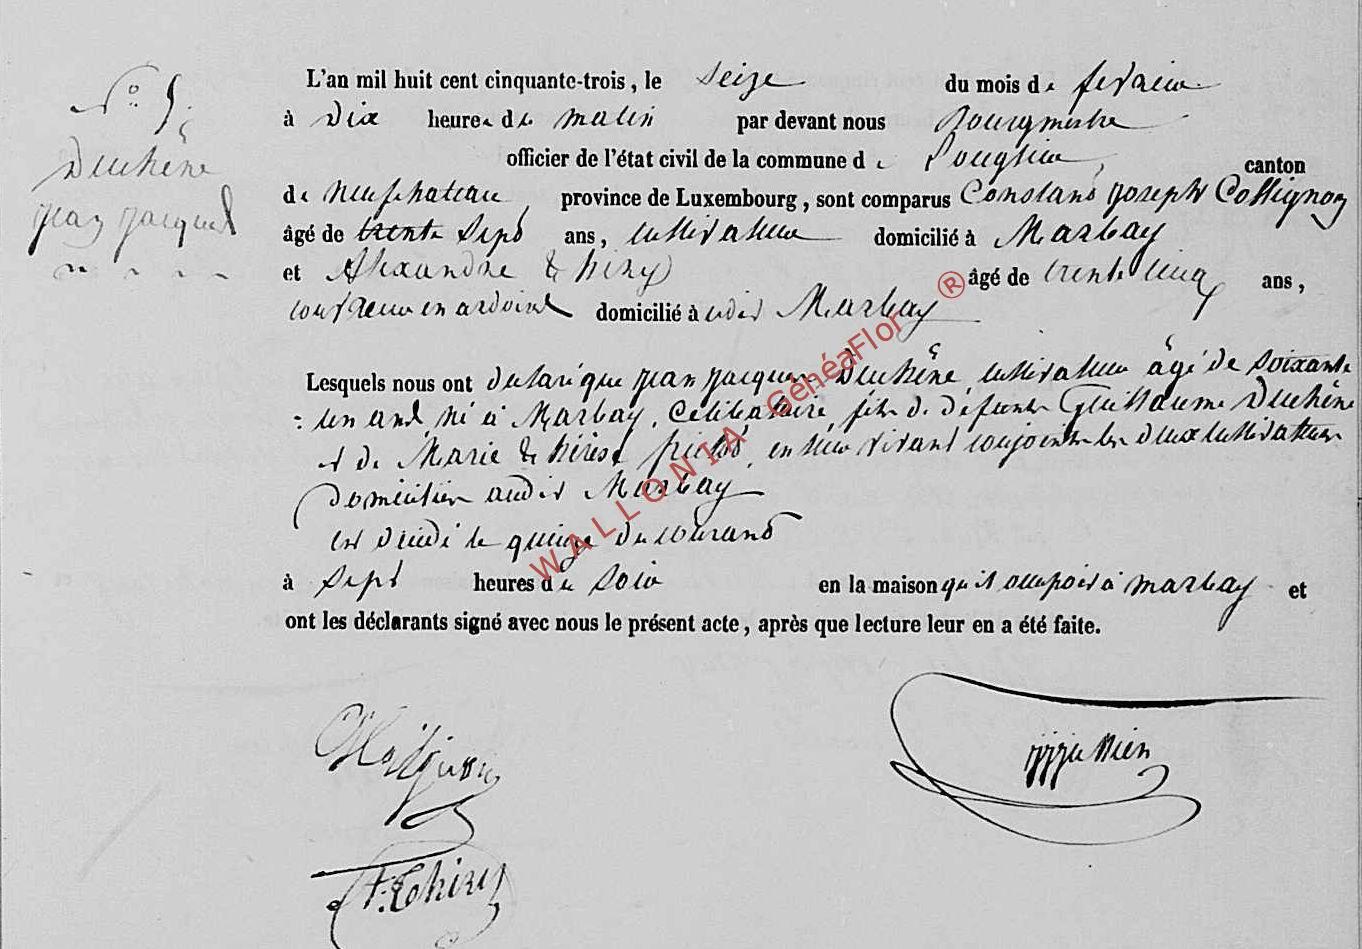 N° 5.
Duchêne
jean jacques
L'an mil huit cent cinquante-trois, le seize du mois de fevrier
à dix heures du matin par devant nous Bourgmestre
officier de l'état civil de la commune de canton
de neufchateau, province de Luxembourg, sont comparus Constant joseph Collignon
âgé de trente sept ans, cultivateur domicilié à Marbay
et Alexandre Thiry âgé de trente cinq ans,
couvreur en ardoises domicilié à udit Marbay
Lesquels nous ont declaré que jean jacques Duchêne cultivateur âgé de soixante
un ans né à Marbay, Celibataire, fils de défunts Guillaume Duchêne
et de Marie thérèse en leur vivant conjoints les deux cultivateurs
domiciliés audit Marbay
est décédé le quinze du courant
à sept heures du soir en la maison qu'il occupoit à marbay et
ont les déclarants signé avec nous le présent acte, après que lecture leur en a été faite.
Thiry
WALLONIA GénéaFlor ®